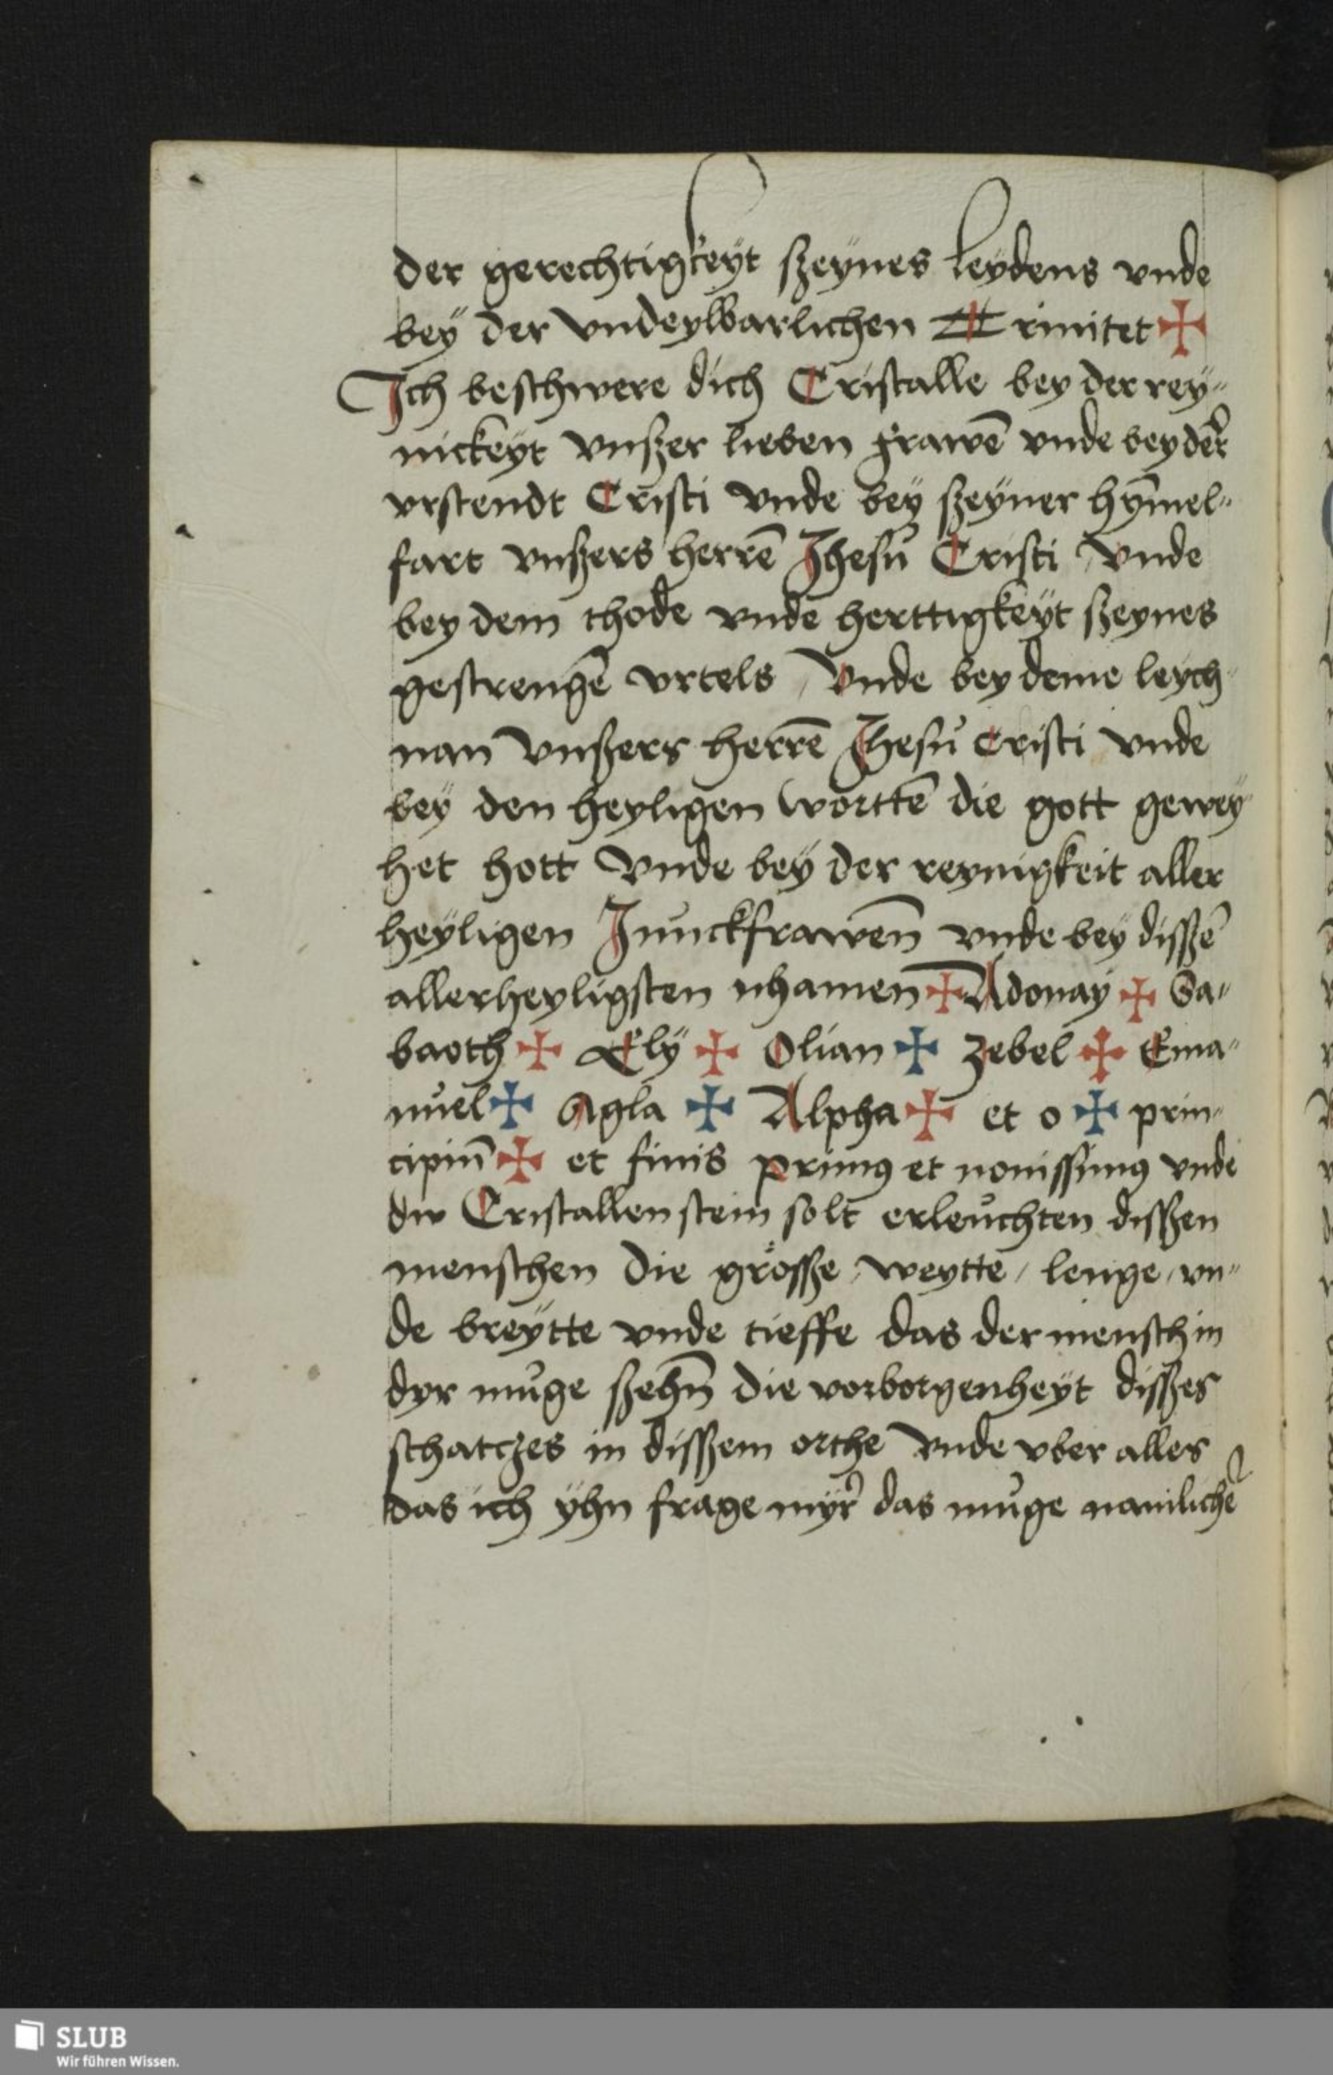 der gerechtigkeyt szeynes leydens vnde
bey der vndeylbarlichen Trinitet ✠
Ich beschwere dich Cristalle bey der rey„
nickeyt vnszer lieben frawē vnde bey der
vrstendt Cristi vnde bey szeyner hȳmel„
fart vnszers herrē Jhesu Cristi vnde
bey dem thode vnde herttigkeyt szeynes
gestrengē vrtels / Vnde bey deme leych„
nan vnszers herrē Jhesu Cristi vnde
bey den heyligen worttē die gott gewey„
het hott Vnde bey der reynigkeit aller
heyligen Junckfrawen̄ vnde bey disszē
allerheyligsten nhamen ✠ Adonay ✠ Sa„
baoth ✠ Ely ✠ Olian ✠ Zebel ✠ Ema„
nuel ✠ Agla ✠ Alpha ✠ et o ✠ prin„
cipiū ✠ et finis primꝰ et nouissimꝰ vnde
du Cristallenstein solt erleuchten disszen
menschen die grösse / weytte / lenge / vn„
de breytte vnde tieffe das der mensch in
dyr muge szehn̄ die vorborgenheyt disszes
schatczes in disszem orthe Vnde vber alles
das ich yhn frage myr das muge namlichē
SLUB
Wir führen Wissen.